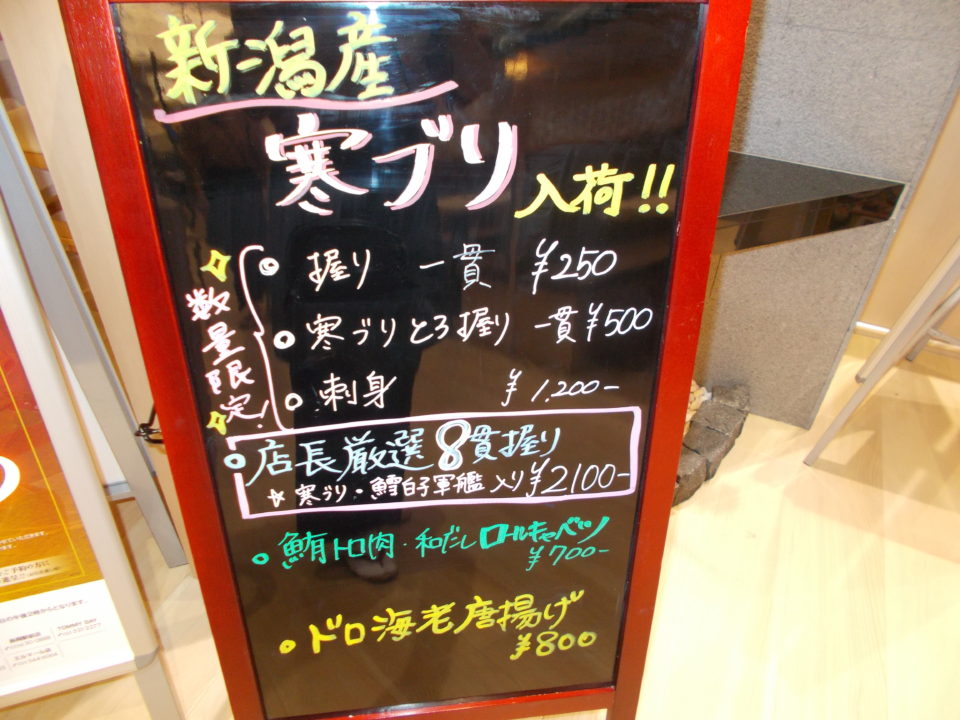 新潟産
寒ブリ
入荷!!
数量限定!
握り 一貫 ¥250
寒ブリとろ握り 一貫¥500
刺身 ¥1,200-
店長厳選8貫握り
☆寒ブリ・鱈白子軍艦入り¥2100-
鮪トロ肉・和だしロールキャベツ
¥700-
ドロ海老唐揚げ
¥800
TOMMY DAY